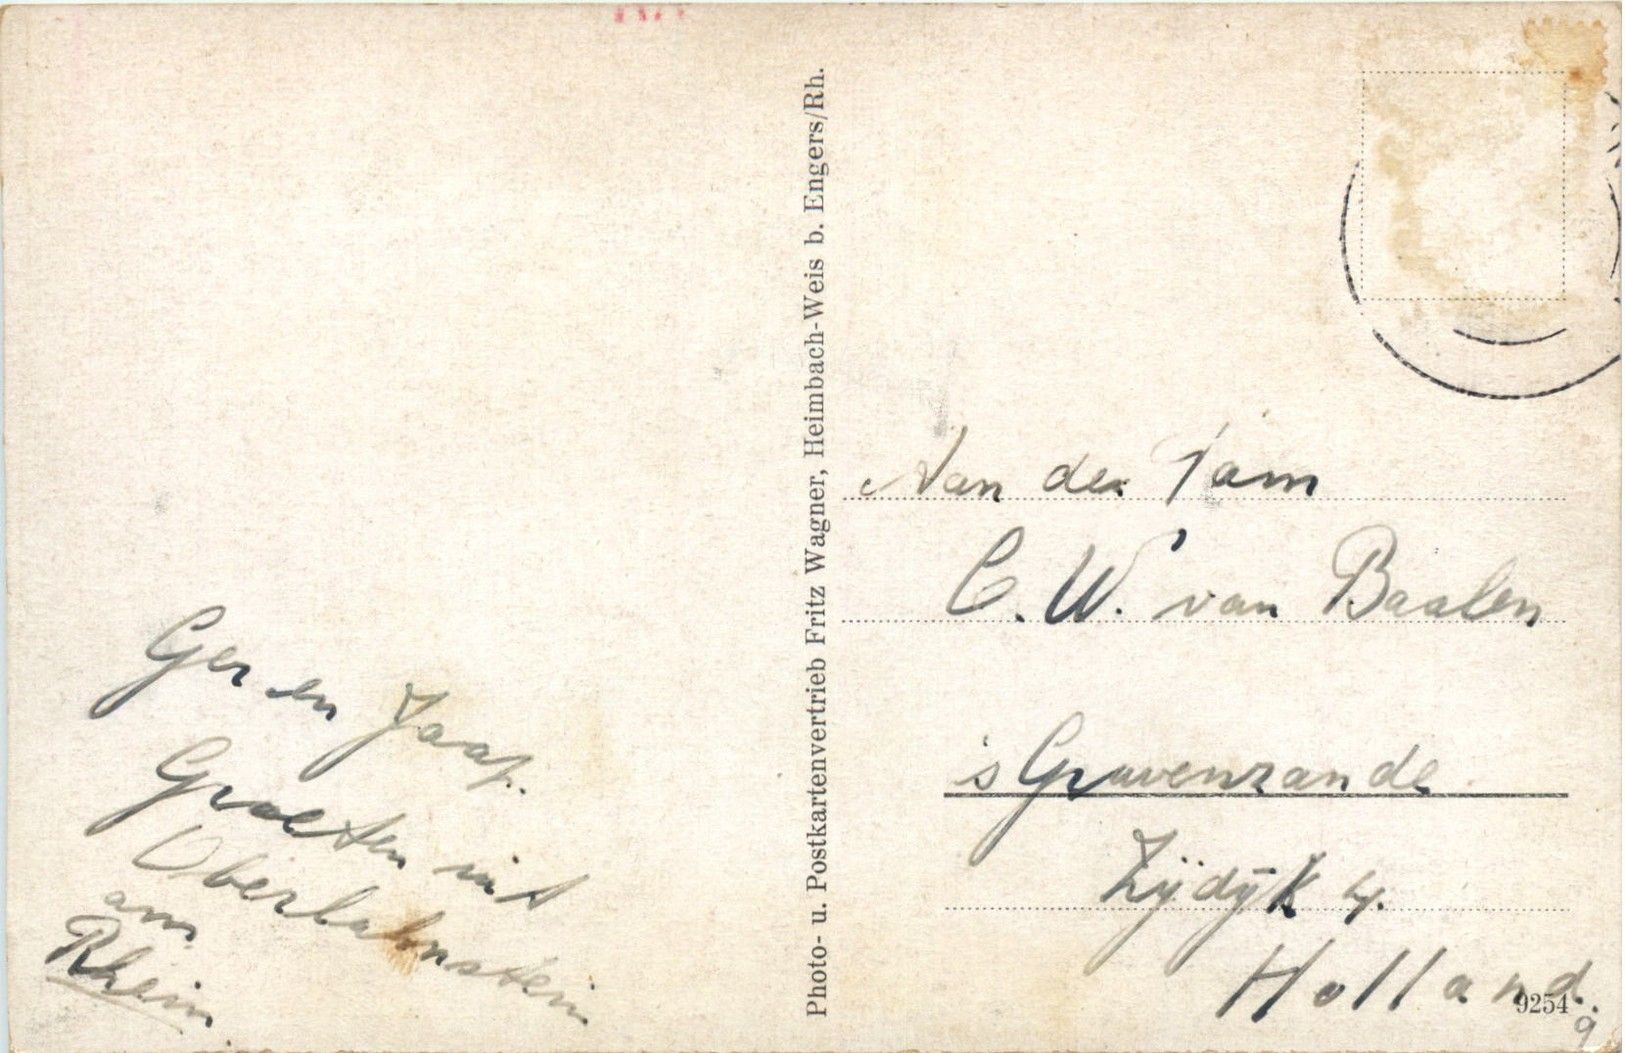 Ger en Jaap.
Groeten uit
Oberlahnstein
am
Rhein
Photo- u. Postkartenvertrieb Fritz Wagner, Heimbach-Weis b. Engers/Rh.
Aan de Fam
C. W. van Baalen
's Gravenzande
Zijdijk 4.
Holland.
9254